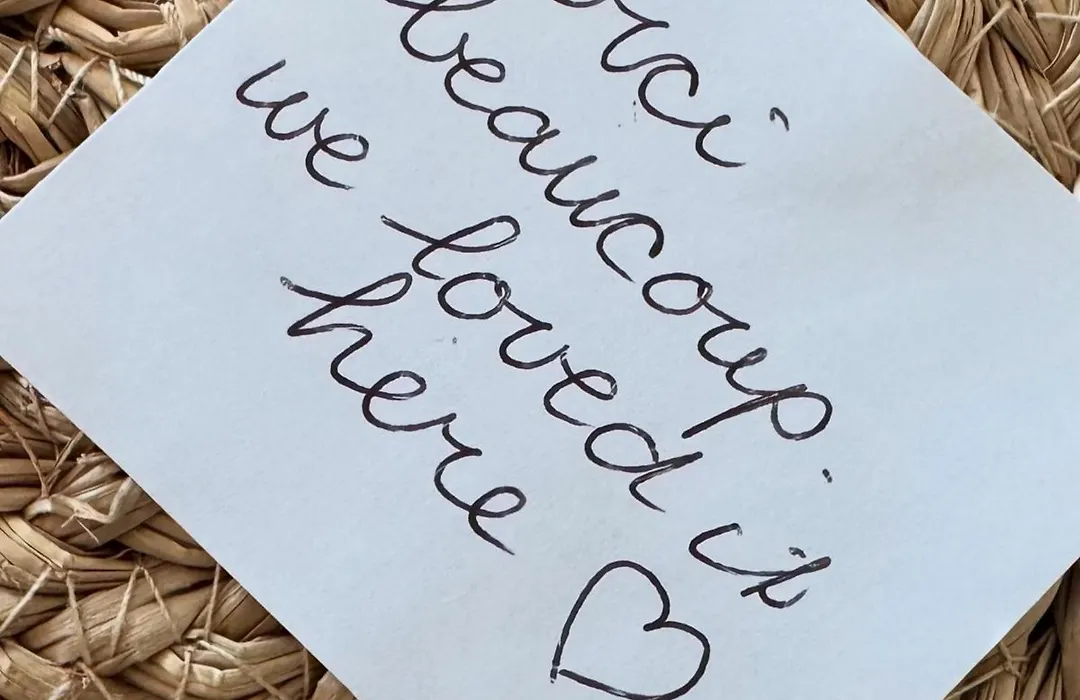 beaucoup
we loved it
here